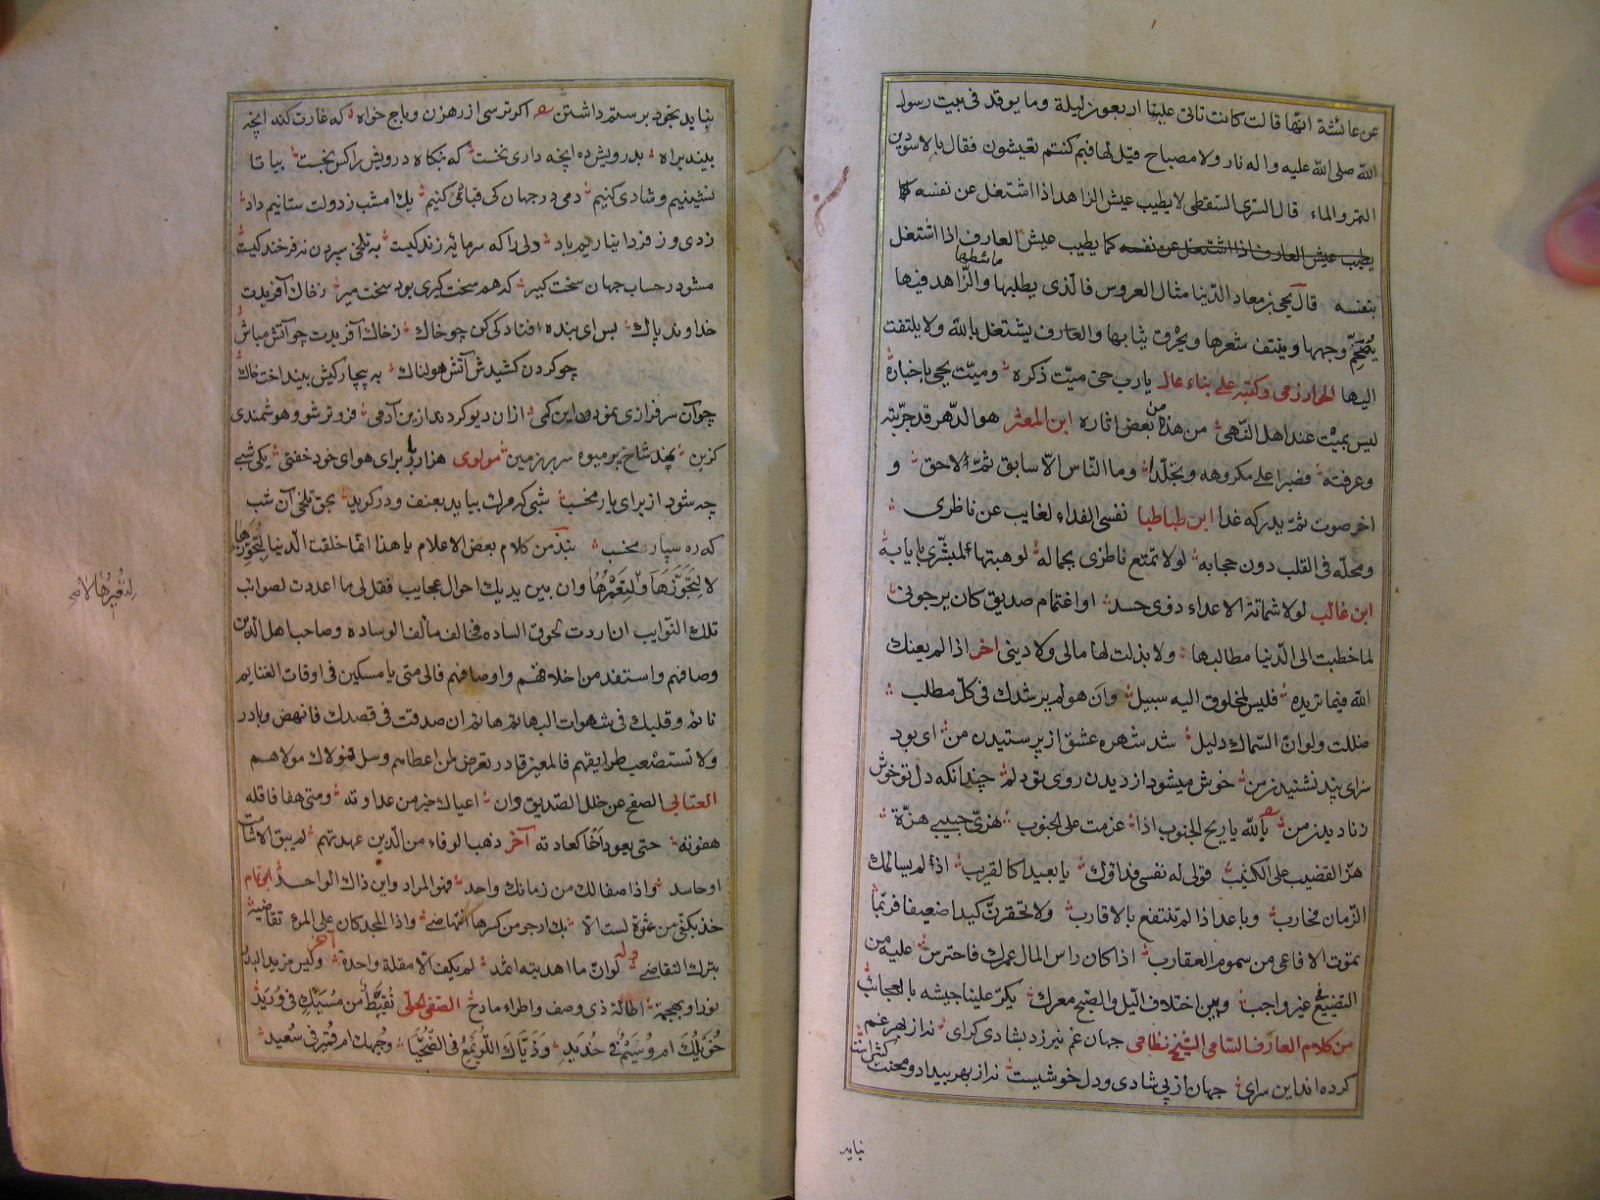 عن عائشة انها قالت كانت تاتى علينا اربعون ليلة وما يوقد فى بيت رسول
الله صلى الله عليه واله نار ولا مصباح قيل لها فبم كنتم تعيشون فقال بالاسودين
التمر والماء قال السرى السقطى لا يطيب عيش الزاهد اذا اشتغل عن نفسه كما
يطيب عيش العارف اذا اشتغل عن نفسه كما يطيب عيش العارف اذا اشتغل
ماشطها
بنفسه قال يحيى بن معاذ الدنيا مثال العروس فالذى يطلبها والزاهد فيها
يضخم وجهها وينتف شعرها ويخرق ثيابها والعارف يشتغل بالله ولا يلتفت
اليها وكتبه على بناء عال يا رب حى ميت ذكره وميت يحيى باخباره
ليس بميت عند اهل النهى من هذه من بعض اثاره ابن المعتز هو الدهر قد جربته
وعرفته فصبرا على مكروهه وتجلدا وما الناس الا سابق ثم لاحق و
اخر صوت ثم يدركه غدا ابن طباطبا نفسى الفداء لغايب عن ناظرى
ومحله فى القلب دون حجابه لولا تمتع ناظرى بجماله لوهبتها لمبشرى بايابه
ابن غالب لولا شماتة الاعداء ذوى حسد او اغتمام صديق كان يرجونى
لما خطبت الى الدنيا مطالبها ولا بذلت لها مالى ولا دينى اخر اذا لم يعنك
الله فيما تريده فليس لمخلوق اليه سبيل وان هو لم يرشدك فى كل مطلب
ضللت ولو ان السماك دليل شد شهره عشق از پرستيدن من اى بود
سزاى پند نشنيدن من خوش ميشود از ديدن روى تو دلم چندانكه دل تو خوش
ز ناديدن من بالله يا ريح الجنوب اذا عزمت على الجنوب هزى حبيبى هزة
هز القضيب على الكثيب قولى له نفسى فداؤك يا بعيد كالقريب اذا لم يسالمك
الزمان فحارب وباعد اذا لم تنتفع بالاقارب ولا تحقرن كيدا ضعيفا فربما
تموت الافاعى من سموم العقارب اذا كان راس المال عمرك فاحترس عليه من
التضييع فى غير واجب وبين اختلاف الليل والصبح معرك يكر علينا جيشه بالعجائب
من كلام العارف السامى الشيخ نظامى جهان غم نيرزد بشادى كراى نه از بهر غم
كرده اند اين سراى جهان از پى شادى و دل خوشيست نه از بهر بيداد و محنت كشى است
نبايد
نبايد بخود بر ستم داشتن اكر ترسى از رهزن و باج خواه كه غارت كند انچه
بيند براه بدرويش ده انچه دارى نخست كه بنكاه درويش را كس نجست بيا تا
نشينيم و شادى كنيم دمى در جهان كى قبادى كنيم يك امشب ز دولت ستانيم داد
ز دى و ز فردا نياريم ياد دلى را كه سرمايه زندكيست به تلخى سپردن نه فرخندكيست
مشو در حساب جهان سخت كير كه هم سخت كيرى بود سخت مير ز خاك آفريدت
خداوند پاك پس اى بنده افتادكى كن چو خاك ز خاك آفريدت چو آتش مباش
چو كردن كشيد آتش هولناك به بيچاركى تن بينداخت خاك
چو آن سرفرازى نمود اين كمى ازان ديو كردند ازين آدمى فروتر شو و هوشمندى
كزين نهد شاخ پر ميوه سر بر زمين مولوى هزار بار براى هواى خود خفتى يكى شبى
چه شود از براى يار مخسب شبى كه مرك بيايد بعنف و در كويد بحق تلخى آن شب
كه ره سپار مخسب نبذ من كلام بعض الاعلام يا هذا انما خلقت الدنيا لتجوزها
لا لتحوزها ولتعبرها وان بين يديك احوال عجايب فقل لى ما اعددت لصوائب
لا لتعمرها صح
تلك النوايب ان اردت لحوق الساده فخالف مألف الوساده وصاحب اهل الدين
وصافهم واستفد من اخلاقهم واوصافهم فالى متى يا مسكين فى اوقات الغنايم
نائم وقلبك فى شهوات البهائم هائم ان صدقت فى قصدك فانهض وبادر
ولا تستصعب طرايقهم فالمعين قادر تعرض لمن اعطاهم وسل فمولاك مولاهم
العتابى الصفح عن خلل الصديق وان اعياك خير من عداوته ومتى هفا فاقله
هفوته حتى يعود اخا كعادته آخر ذهب الوفاء من الذين عهدتهم لم يبق الا شامت
او حاسد واذا صفا لك من زمانك واحد فهو المراد واين ذاك الواحد ابو تمام
خذ بكفى من عثرة لست الا بك ارجو من كسرها انتهاضى واذا المجد كان على المرء تقاضيته
بترك التقاضى وله لو ان ما اهديته اثمد لم يكف الا مقلة واحدة آخر وليس مزيد البدر
نورا وبهجة اطالة ذى وصف واطراء مادح الصفى الحلى نقيط من مسيك فى وريد
خويلك ام وشيم فى خديد وذياك اللويمع فى الضحيا وجيهك ام قمير فى سعيد